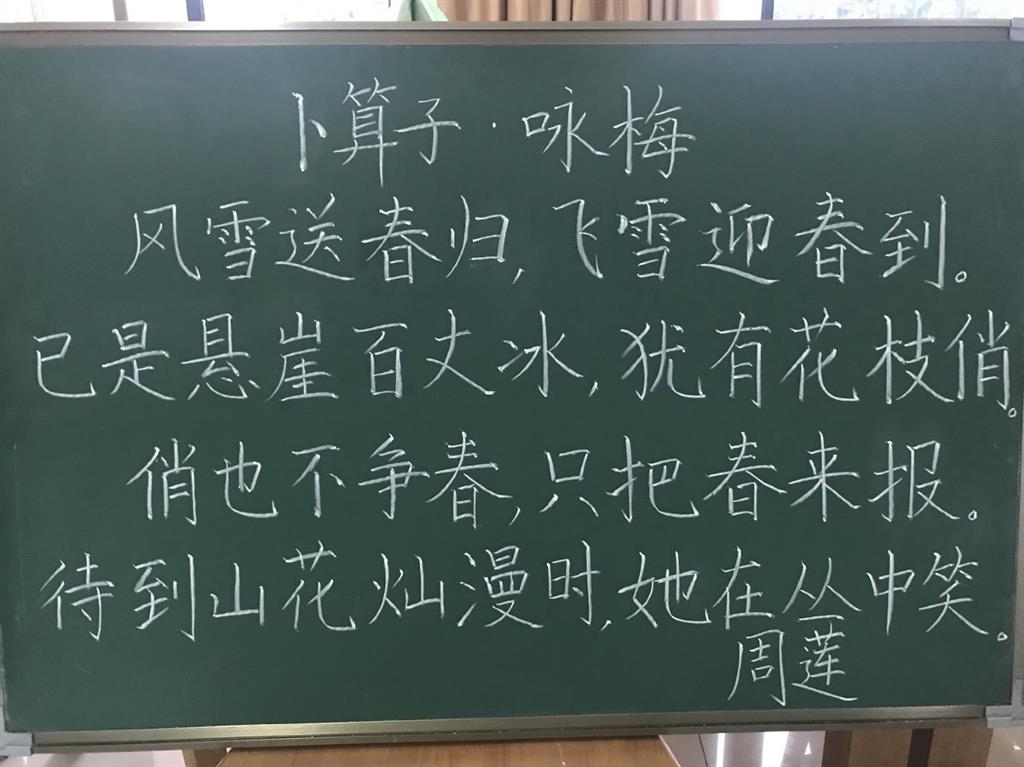 卜算子·咏梅
风雪送春归,飞雪迎春到。
已是悬崖百丈冰,犹有花枝俏。
俏也不争春,只把春来报。
待到山花灿漫时,她在丛中笑。
周莲